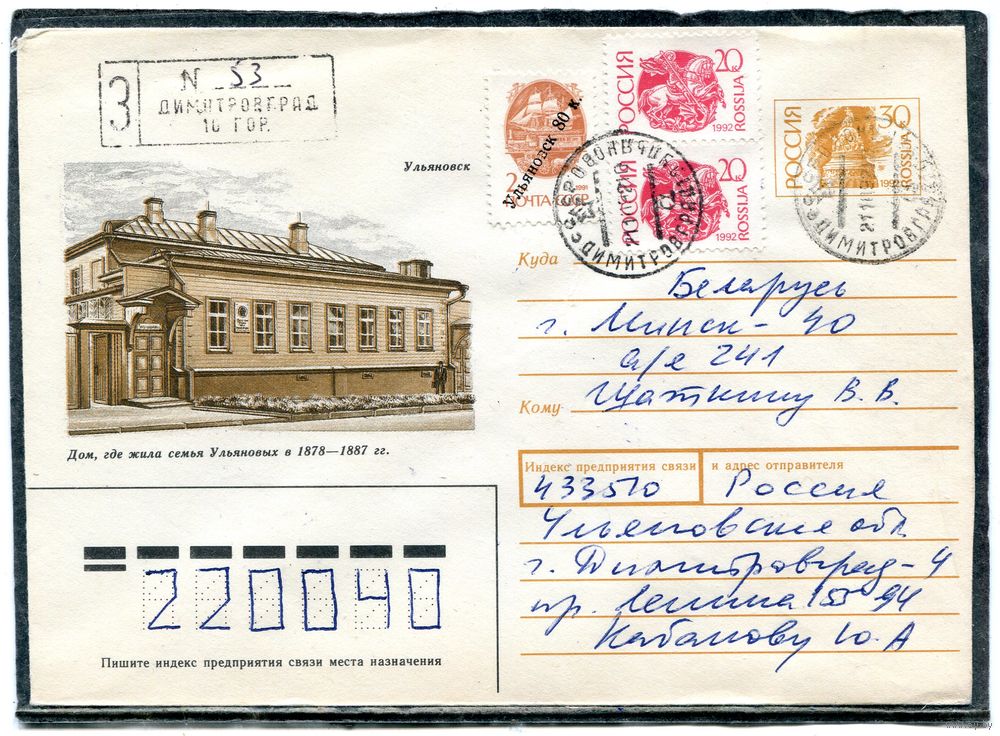 З
N 53
ДИМИТРОВГРАД
10 ГОР.
Ульяновск
Дом, где жила семья Ульяновых в 1878—1887 гг.
1991
ПОЧТА СССР
Ульяновск 80 к.
РОССИЯ 20 к
1992 ROSSIJA
РОССИЯ 20 к
1992 ROSSIJA
РОССИЯ 30 к
1992 ROSSIJA
ДИМИТРОВГРАД
ДИМИТРОВГРАД
Куда
Беларусь
г. Минск - 40
а/я 241
Кому Щаткину В. В.
Индекс предприятия связи и адрес отправителя
433510 Россия
Ульяновская обл
г. Димитровград - 4
пр. Ленина 94
Кабанову Ю. А
220040
Пишите индекс предприятия связи места назначения